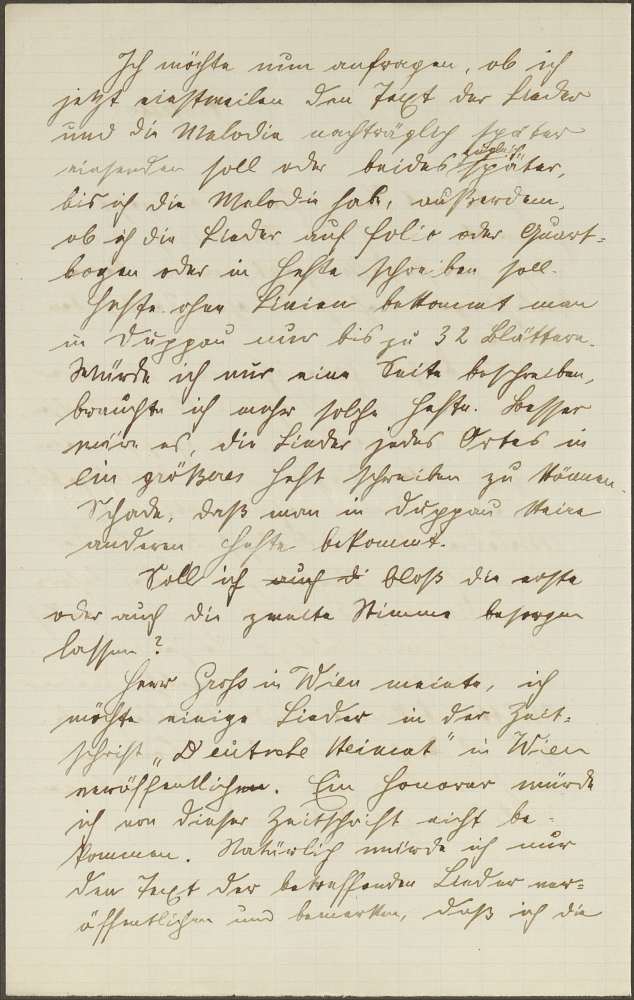 Ich möchte nun anfragen, ob ich
jetzt einstweilen den Text der Lieder
und die Melodie nachträglich später
einsenden soll oder beides zugleich später,
bis ich die Melodie habe, außerdem,
ob ich die Lieder auf Folio oder Quart-
bogen oder in Hefte schreiben soll.
Hefte ohne Linien bekommt man
in Duppau nur bis zu 32 Blättern.
Würde ich nur eine Seite beschreiben,
brauchte ich mehr solche Hefte. Besser
wäre es, die Lieder jedes Ortes in
ein größeres Heft schreiben zu können.
Schade, daß man in Duppau keine
anderen Hefte bekommt.
Soll ich auch di bloß die erste
oder auch die zweite Stimme besorgen
lassen?
Herr Groß in Wien meinte, ich
möchte einige Lieder in der Zeit-
schrift „Deutsche Heimat“ in Wien
veröffentlichen. Ein Honorar würde
ich von dieser Zeitschrift nicht be-
kommen. Natürlich würde ich nur
den Text der betreffenden Lieder ver-
öffentlichen und bemerken, daß ich die